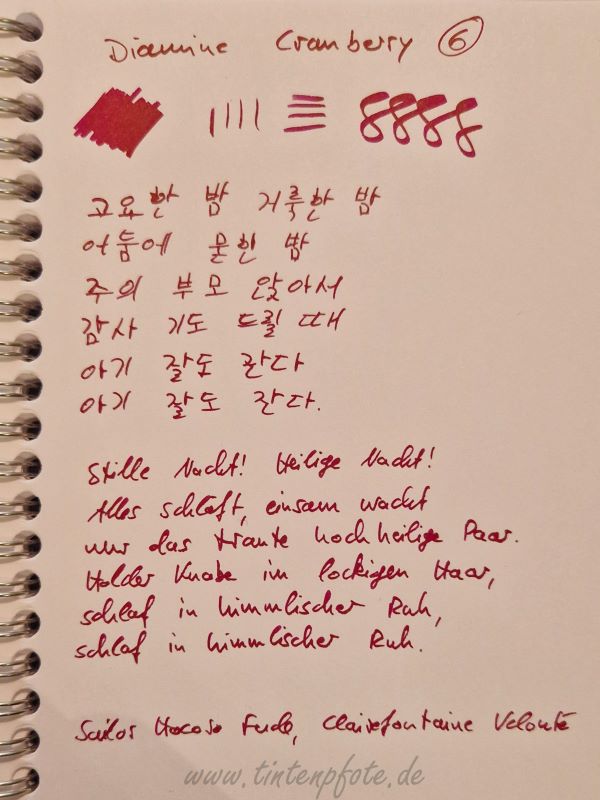 Diamine Cranberry 6
8888
고요한 밤 거룩한 밤
어둠에 묻힌 밤
주의 부모 앉아서
감사 기도 드릴 때
아기 잘도 잔다
아기 잘도 잔다.
Stille Nacht! Heilige Nacht!
Alles schläft, einsam wacht
nur das traute hochheilige Paar.
Holder Knabe im lockigen Haar,
schlaf in himmlischer Ruh,
schlaf in himmlischer Ruh.
Sailor Hocoro Fude, Clairefontaine Velouté
www.tintenpfote.de